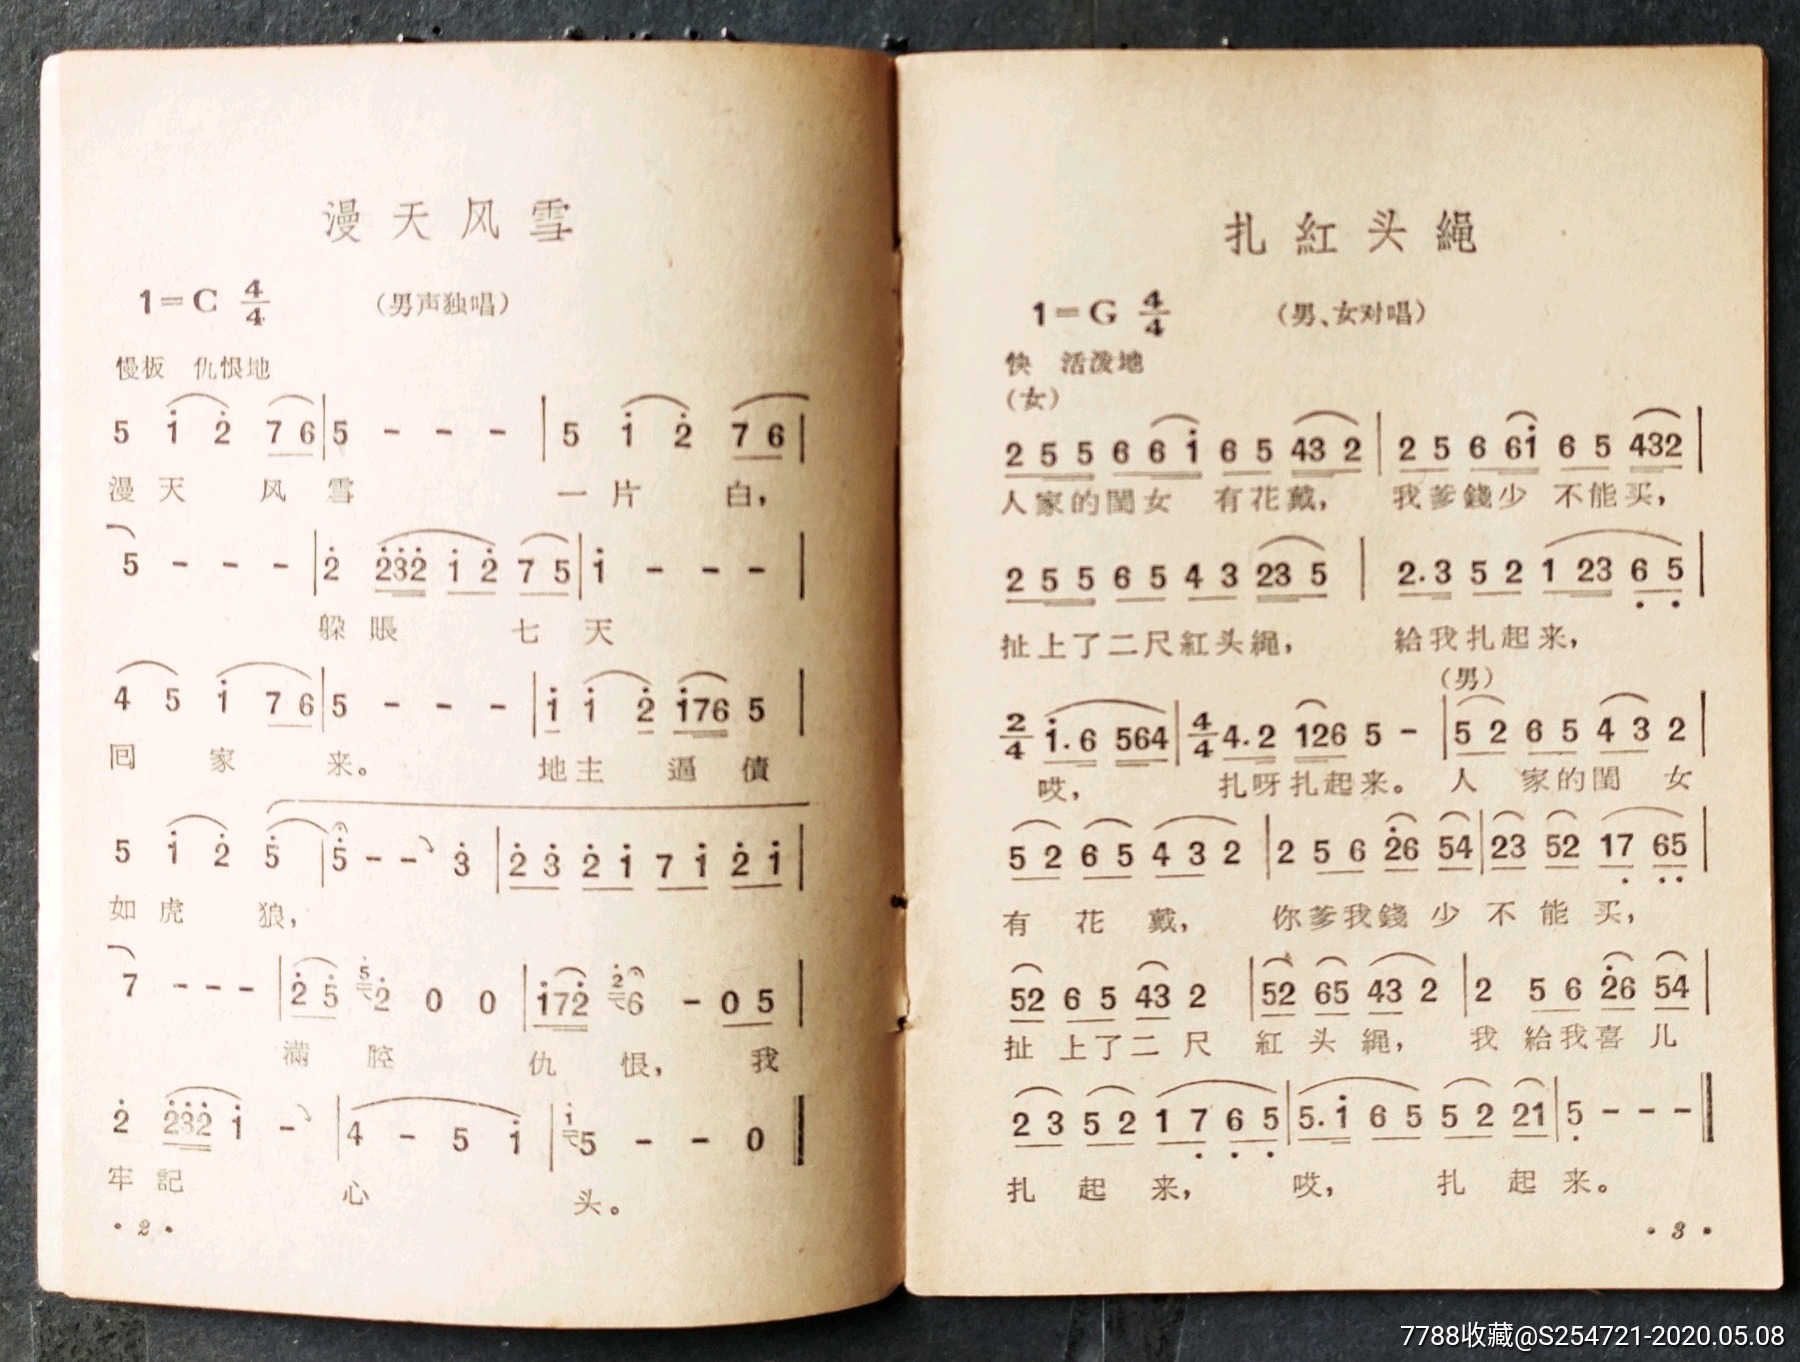 漫天风雪
1=C 4/4 (男声独唱)
慢板 仇恨地
5 i̇ 2̇ 7 6 | 5 - - - | 5 i̇ 2̇ 7 6 |
漫天 风雪 一片 白，
5 - - - | 2̇ 2̇3̇2̇ i̇ 2̇ 7 5 | i̇ - - - |
躲賬 七天
4 5 i̇ 7 6 | 5 - - - | i̇ i̇ 2̇ i̇76 5 |
回 家 来。 地主 逼 債
5 i̇ 2̇ 5̇ | 5̇ - - 3̇ | 2̇ 3̇ 2̇ i̇ 7 i̇ 2̇ i̇ |
如虎 狼，
7 - - - | 2̇ 5̇ 5̇ 2̇ 0 0 | i̇72̇ 2̇ 6 - 0 5 |
滿 腔 仇 恨， 我
2̇ 2̇3̇2̇ i̇ - | 4 - 5 i̇ | i̇ 5 - - 0
牢記 心 头。
· 2 ·
扎紅头繩
1=G 4/4 (男、女对唱)
快 活潑地
(女)
2 5 5 6 6 i̇ 6 5 43 2 | 2 5 6 6i̇ 6 5 432 |
人家的閨女 有花戴， 我爹錢少 不能买，
2 5 5 6 5 4 3 23 5 | 2.3 5 2 1 23 6̣ 5̣ |
扯上了二尺紅头繩， 給我扎起来，
(男)
2/4 i̇.6 564 | 4/4 4.2 126 5 - | 5 2 6 5 4 3 2 |
哎， 扎呀扎起来。 人 家的閨 女
5 2 6 5 4 3 2 | 2 5 6 2̇6 54 | 23 52 17̣ 6̣5̣ |
有 花 戴， 你爹我錢 少 不 能 买，
52 6 5 43 2 | 52 65 43 2 | 2 5 6 2̇6 54 |
扯 上了二 尺 紅 头 繩， 我 給我喜 儿
2 3 5 2 1 7̣ 6̣ 5̣ | 5.i̇ 6 5 5 2 21 | 5̣ - - -
扎 起 来， 哎， 扎 起 来。
· 3 ·
7788收藏@S254721-2020.05.08